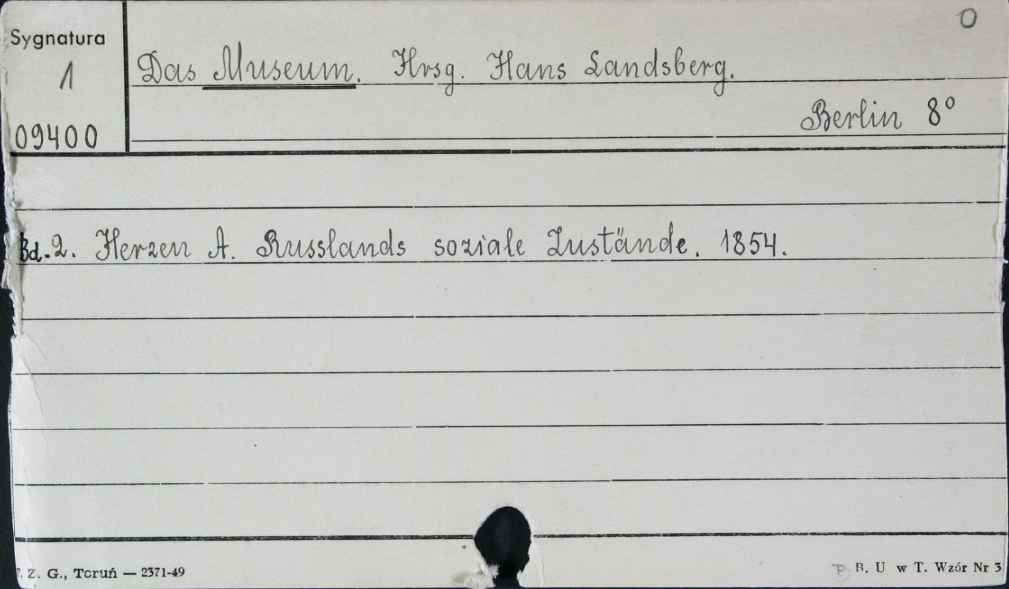 O
Sygnatura
1
09400
Das Museum. Hrsg. Hans Landsberg.
Berlin 8°
Bd. 2. Herzen A. Russlands soziale Zustände. 1854.
Z. G., Toruń — 2371-49
B. U w T. Wzór Nr 3